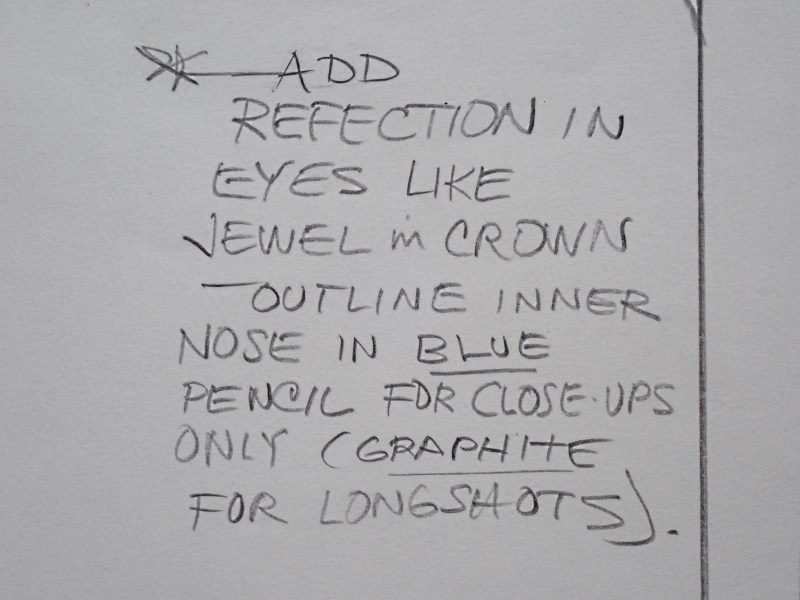 * — ADD
REFECTION IN
EYES LIKE
JEWEL in CROWN
— OUTLINE INNER
NOSE IN BLUE
PENCIL FOR CLOSE-UPS
ONLY (GRAPHITE
FOR LONGSHOTS).